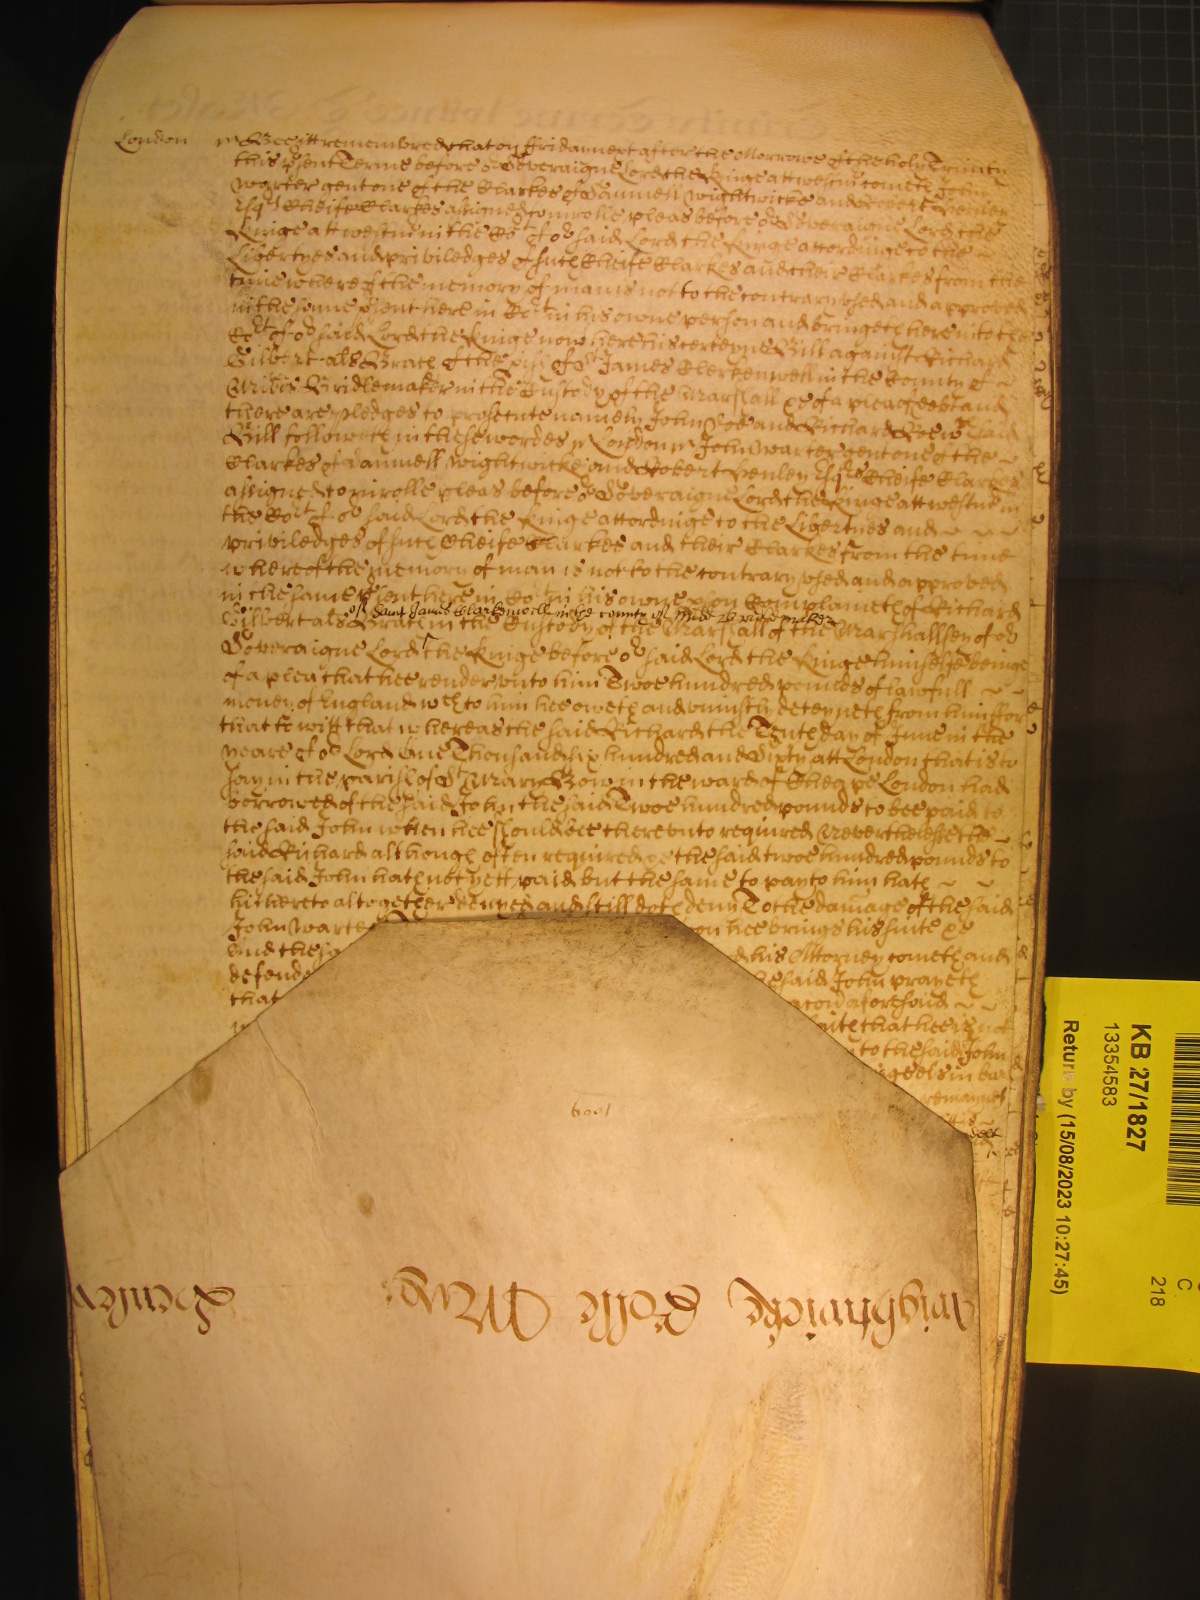 London
Bee itt remembred that on ffriday next after the Morrowe of the holy Trinity
this p'sent Terme before or Soveraigne Lord the Kinge att westm cometh John
Warter gent one of the Clarkes of Samuell Wightwicke and Robert Henley
Esqrs Cheife Clarkes assigned to inrolle pleas before or Soveraigne Lord the
Kinge att westm in the Cort of or said Lord the Kinge accordinge to the
Libertyes and priviledges of such Cheife Clarkes and their Clarkes from the
time whereof the memory of man is not to the contrary used and approved
in the same p'sent here in Cort in his owne person and bringeth here into the
Cort of or said Lord the Kinge now here his certeyne Bill against Richard
Gilbert als Brach of the p'ish of St James Clerkenwell in the County of
Midd Bridlemaker in the Custody of the Marshall &c of a plea of debt and
there are pledges to prosecute namely John Doe and Richard Roe wch said
Bill followeth in these wordes London John Warter gent one of the
Clarkes of Samuell Wightwicke and Robert Henley Esqrs Cheife Clarkes
assigned to inrolle pleas before or Soveraigne Lord the Kinge att westm in
the Cort of or said Lord the Kinge accordinge to the Libertyes and
priviledges of such Cheife Clarkes and their Clarkes from the time
whereof the memory of man is not to the contrary used and approved
in the same p'sent here in Cort in his owne p'son Complaineth of Richard
of Saint James Clarkenwell in the county of Midd Bridlemaker
Gilbert als Brach in the Custody of the Marshall of the Marshallsey of or
Soveraigne Lord the Kinge before or said Lord the Kinge himselfe beinge
of a plea that hee render unto him Twoe hundred pounds of lawfull
money of England wch to him hee oweth and uniustly deteyneth from him ffor
that to witt that whereas the said Richard the Tenth day of June in the
yeare of or Lord One Thousand six hundred and Sixty att London that is to
say in the parish of St Mary Bow in the ward of Cheape London had
borrowed of the said John the said Twoe hundred pounds to bee paid to
the said John when hee should bee thereunto required Neverthelesse the
said Richard although often required &c the said twoe hundred pounds to
the said John hath not yett paid but the same to pay to him hath
hitherto altogether denyed and still doth deny To the damage of the said
John Warter on hee brings his suite &c
And the sa d his Attorney cometh and
defende said John prayeth
that aforesaid
saith that hee is not
to the said John
in bar
remaines
Wightwicke Rolle Mid
Henley
KB 27/1827
13354583
Return by (15/08/2023 10:27:45)
C
218